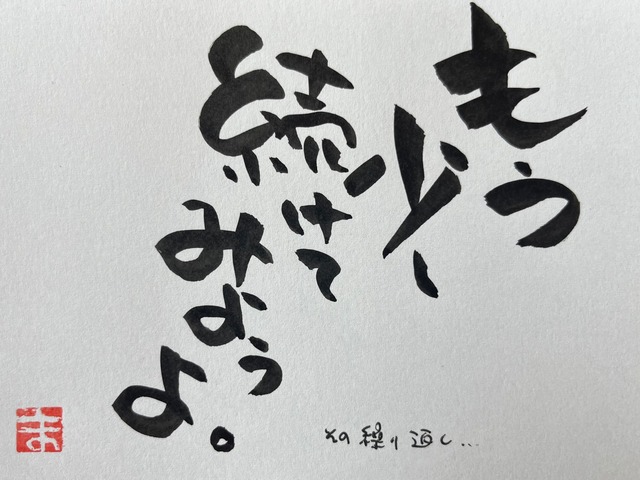 もう
少し
続けて
みようよ。
その繰り返し...
ま